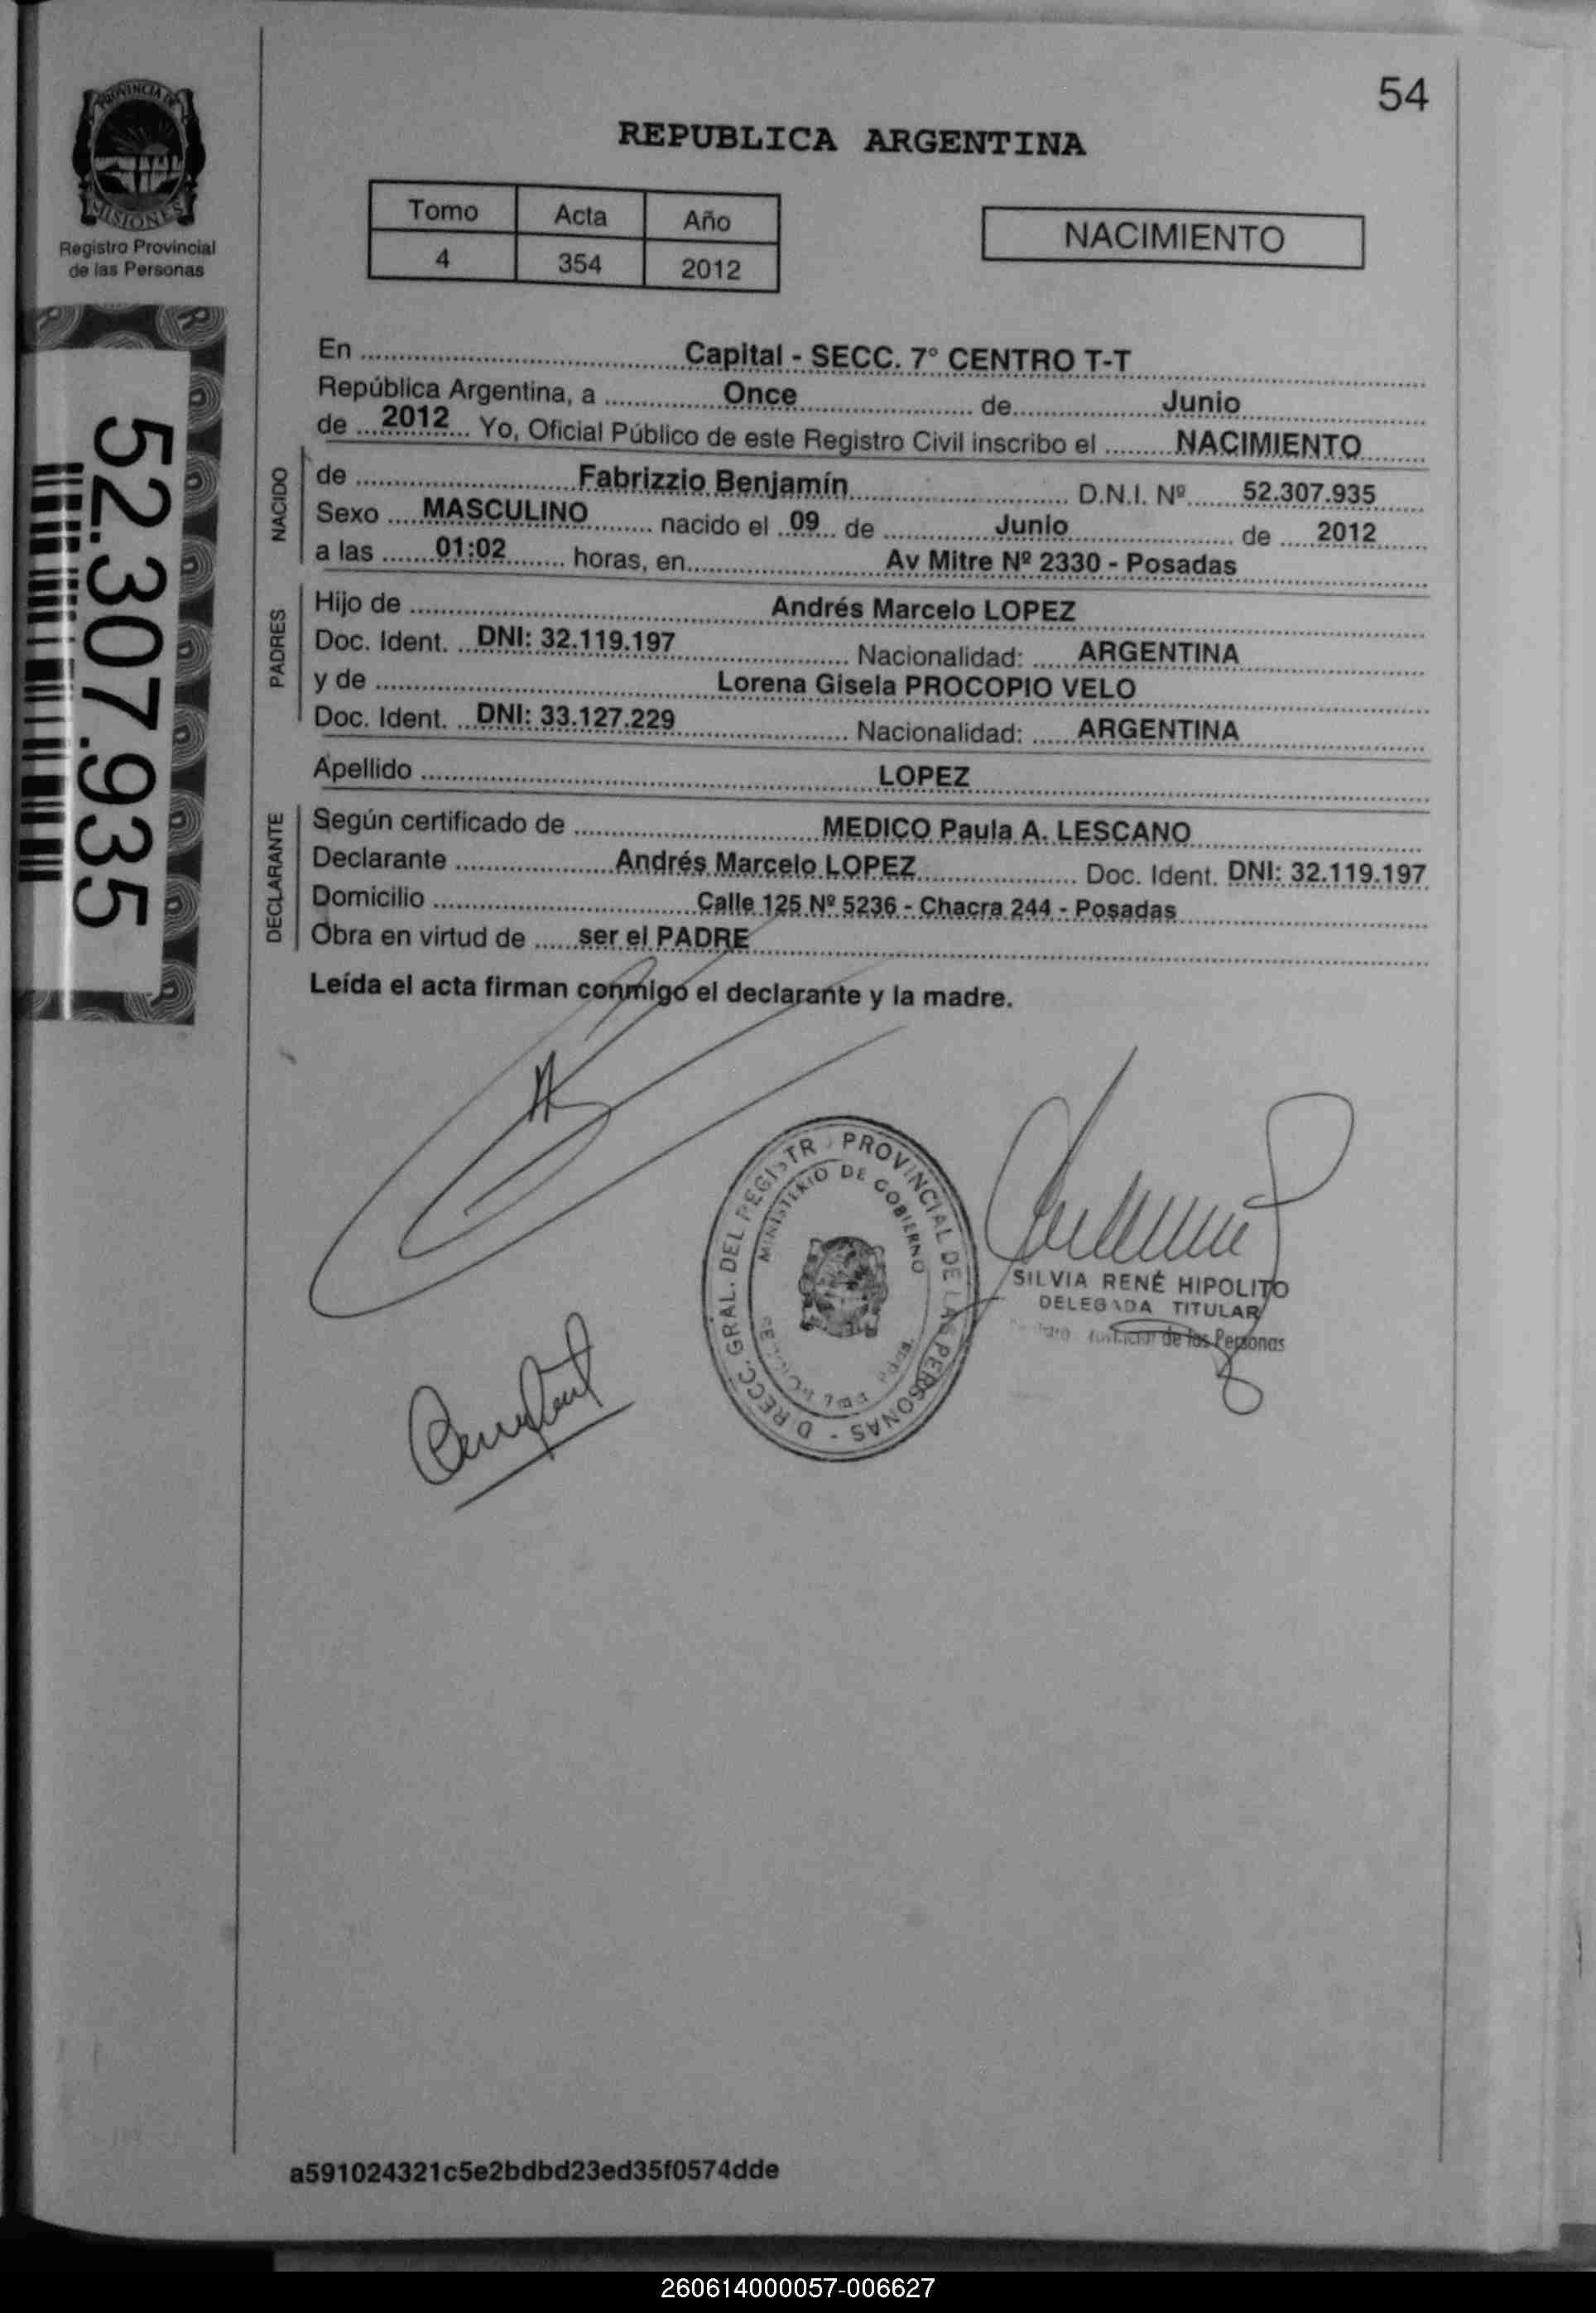 54
PROVINCIA DE
MISIONES
Registro Provincial
de las Personas
52.307.935
REPUBLICA ARGENTINA
Tomo Acta Año
4 354 2012
NACIMIENTO
En Capital - SECC. 7° CENTRO T-T
República Argentina, a Once de Junio
de 2012 Yo, Oficial Público de este Registro Civil inscribo el NACIMIENTO
NACIDO
de Fabrizzio Benjamín D.N.I. Nº 52.307.935
Sexo MASCULINO nacido el 09 de Junio de 2012
a las 01:02 horas, en Av Mitre Nº 2330 - Posadas
PADRES
Hijo de Andrés Marcelo LOPEZ
Doc. Ident. DNI: 32.119.197 Nacionalidad: ARGENTINA
y de Lorena Gisela PROCOPIO VELO
Doc. Ident. DNI: 33.127.229 Nacionalidad: ARGENTINA
Apellido LOPEZ
DECLARANTE
Según certificado de MEDICO Paula A. LESCANO
Declarante Andrés Marcelo LOPEZ Doc. Ident. DNI: 32.119.197
Domicilio Calle 125 Nº 5236 - Chacra 244 - Posadas
Obra en virtud de ser el PADRE
Leída el acta firman conmigo el declarante y la madre.
DIRECC. GRAL. DEL REGISTR PROVINCIAL DE LAS PERSONAS -
MINISTERIO DE GOBIERNO
SILVIA RENÉ HIPOLITO
DELEGADA TITULAR
de las Personas
a591024321c5e2bdbd23ed35f0574dde
260614000057-006627